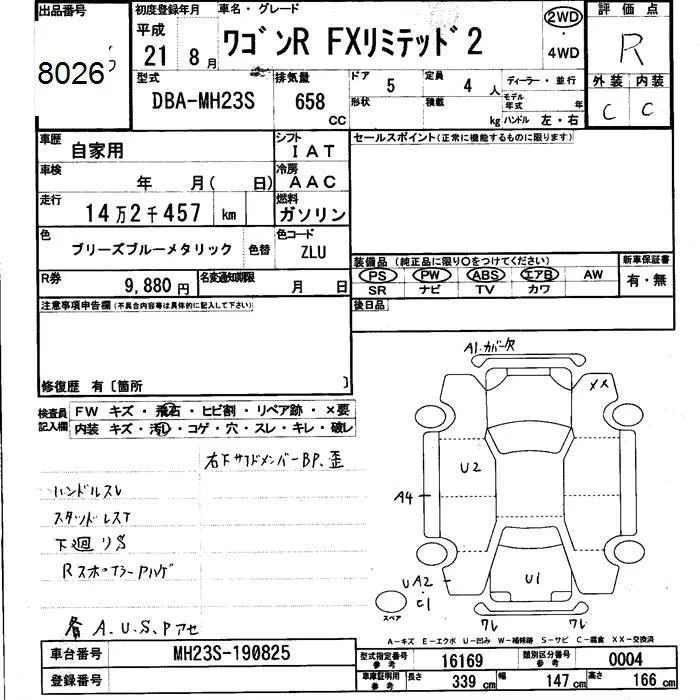 出品番号
8026
初度登録年月
平成
21 8月
車名・グレード
ワゴンR FXリミテッド2
2WD
・
4WD
評価点
R
型式
DBA-MH23S
排気量
658
CC
ドア
5
定員
4 人
ディーラー・並行
形状
積載
kg
モデル年式 年
ハンドル 左・右
外装 内装
C C
車歴
自家用
シフト
IAT
セールスポイント(正常に機能するものに限ります)
車検
年 月( 日)
冷房
AAC
走行
14万2千457 km
燃料
ガソリン
色
ブリーズブルーメタリック
色替
色コード
ZLU
装備品 (純正品に限り○をつけてください)
新車保証書
PS PW ABS エアB AW
有・無
SR ナビ TV カワ
R券
9,880円
名変通知期限
月 日
後日品
注意事項申告欄(不具合内容等は具体的に記入して下さい)
修復歴 有〔箇所 〕
検査員記入欄
FW キズ・飛石・ヒビ割・リペア跡・×要
内装 キズ・汚れ・コゲ・穴・スレ・キレ・破レ
右下サイドメンバーBP、歪
ハンドルスレ
スタッドレスT
下廻りS
RスポイラーPハゲ
各A.U.S.Pアセ
A1・カバー欠
XX
U2
A4
UA2
・C1
U1
スペア
ワレ ワレ
A-キズ E-エクボ U-凹み W-補修跡 S-サビ C-腐食 XX-交換済
車台番号
MH23S-190825
型式指定番号
参考
16169
類別区分番号
参考
0004
登録番号
車庫証明用
参考
長さ 339 cm
幅 147 cm
高さ 166 cm